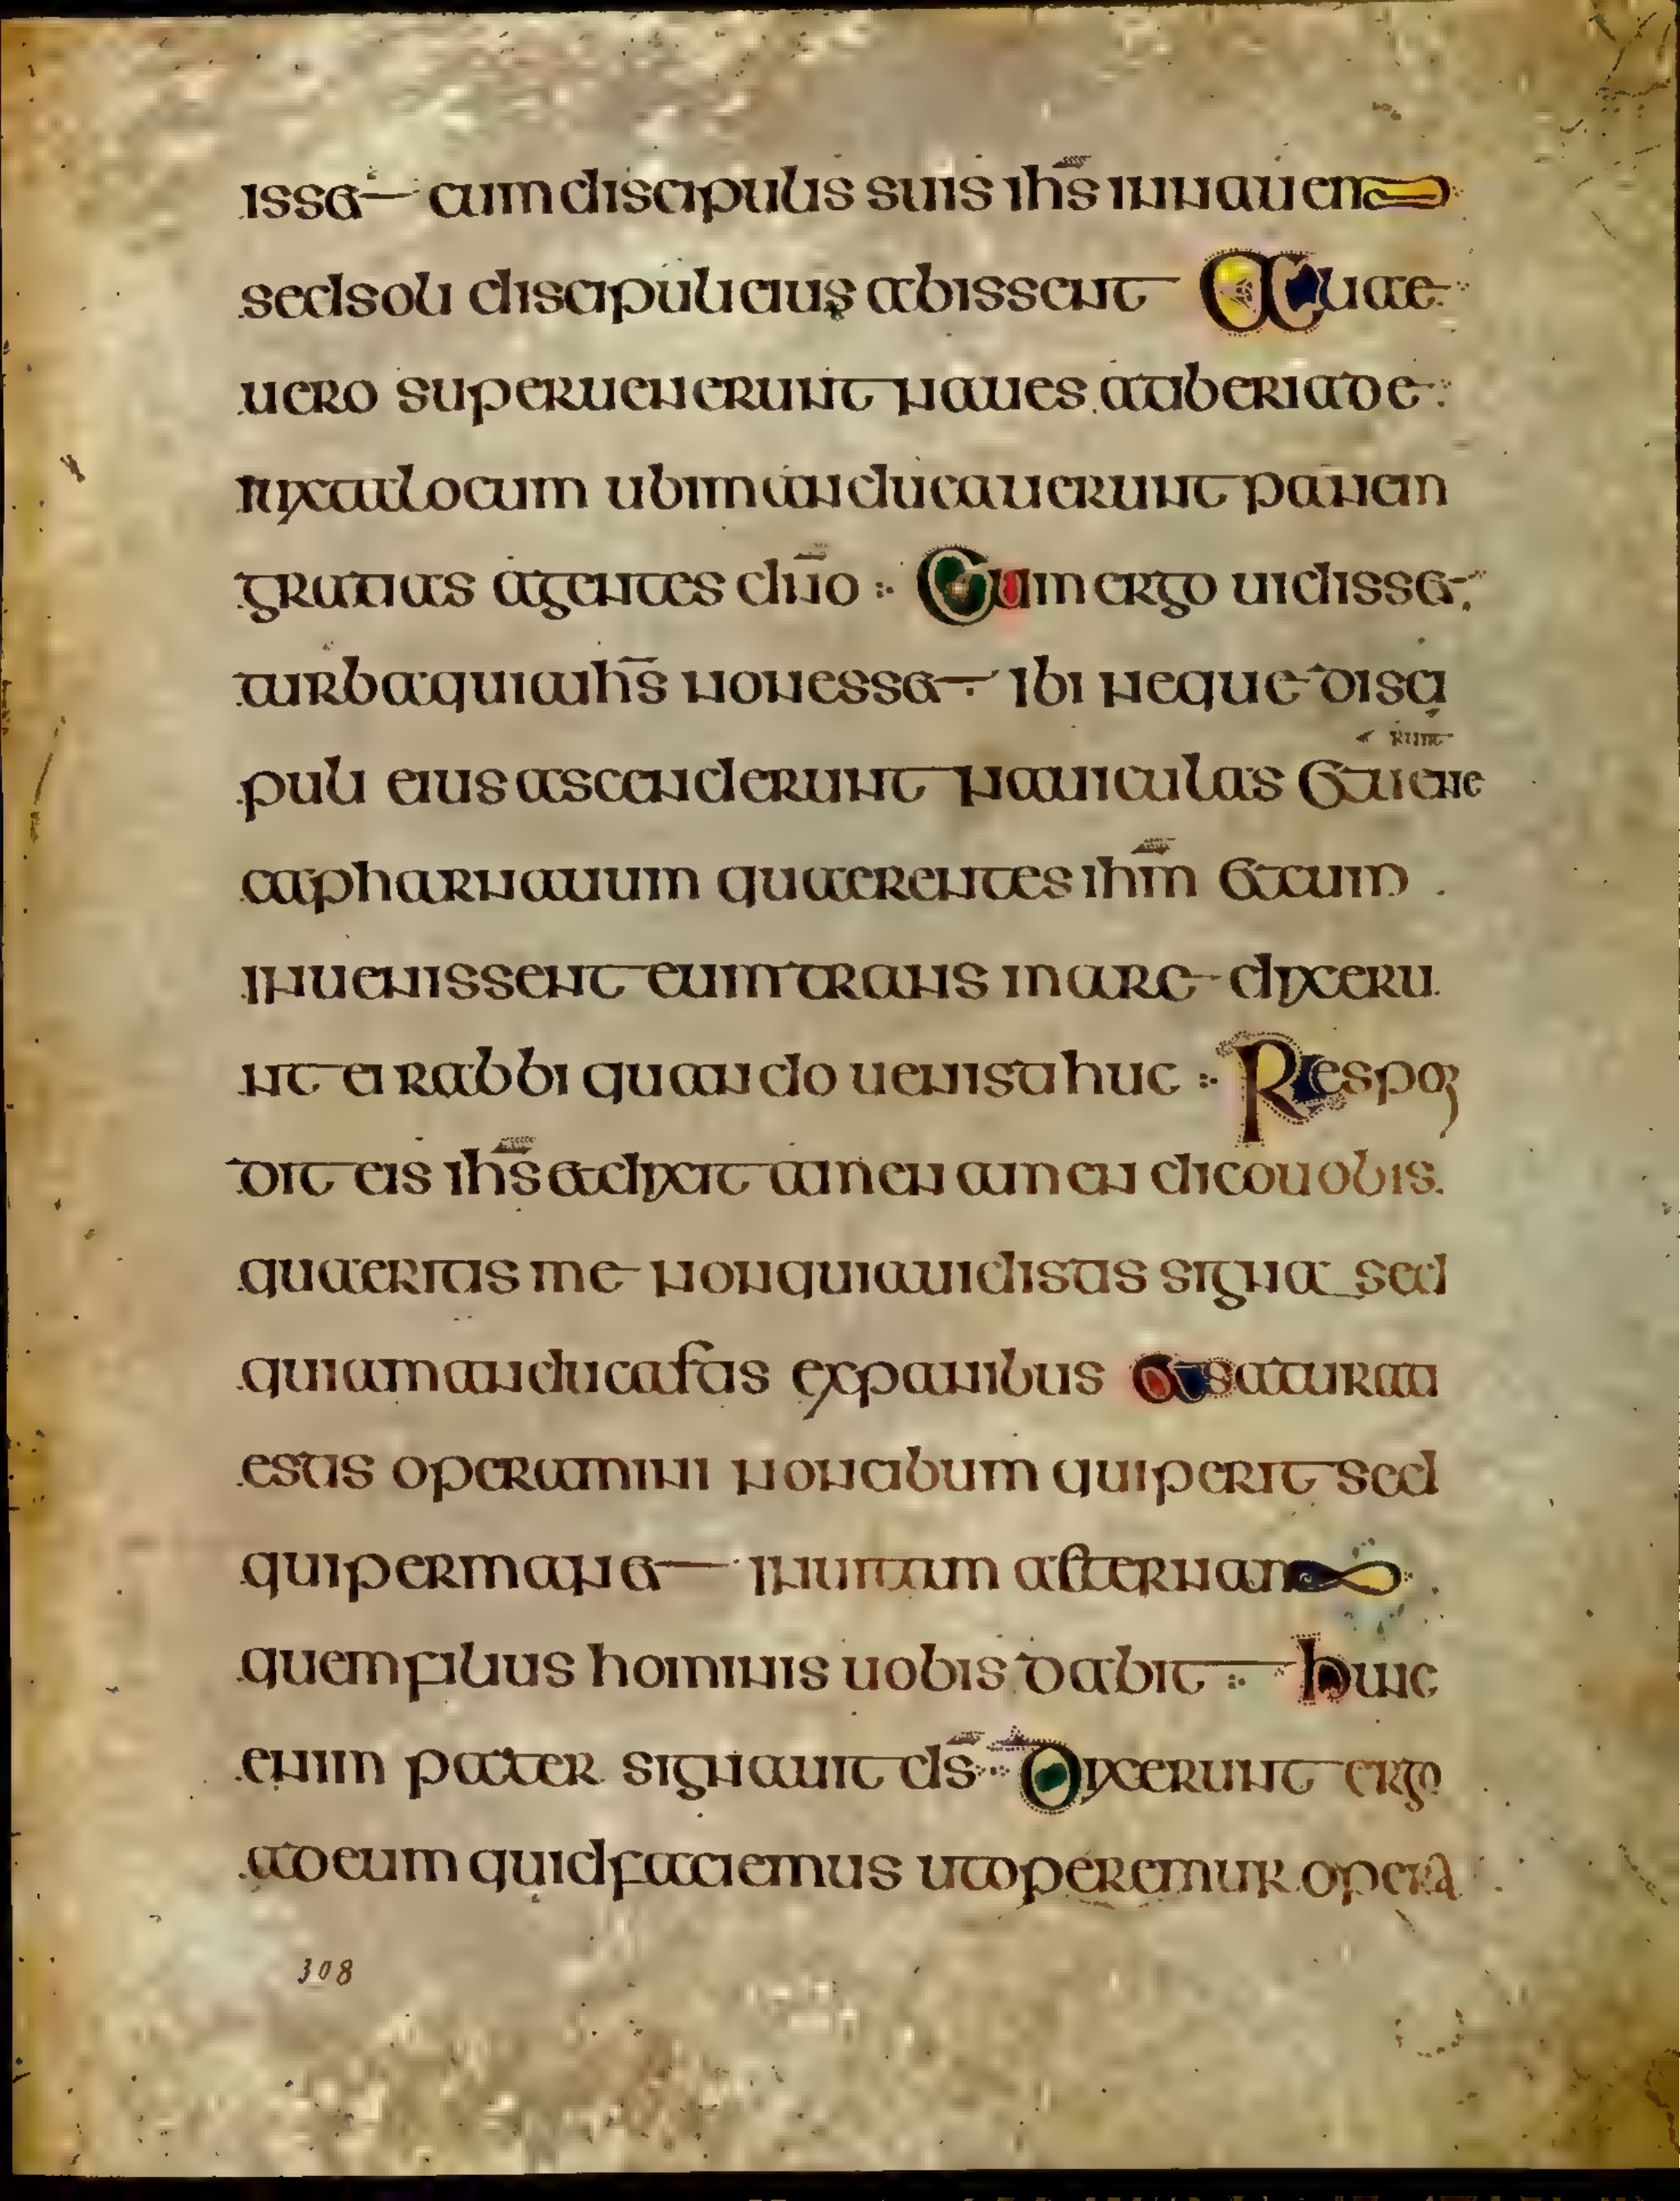 isset cum discipulis suis ihs in nauem
sed soli discipuli eius abissent Aliae
uero superuenerunt naues a tiberiade
iuxta locum ubi manducauerunt panem
gratias agentes dno Cum ergo uidisset
turba quia ihs non esset ibi neque disci
puli eius ascenderunt nauiculas et uene
runt
capharnauum quaerentes ihm et cum
inuenissent eum trans mare dixeru
nt ei rabbi quando uenisti huc Respon
dit eis ihs et dixit amen amen dico uobis
quaeritis me non quia uidistis signa sed
quia manducastis ex panibus et saturati
estis operamini non cibum qui perit sed
qui permanet in uitam aeternam
quem filius hominis uobis dabit hunc
enim pater signauit ds Dixerunt ergo
ad eum quid faciemus ut operemur opera
308